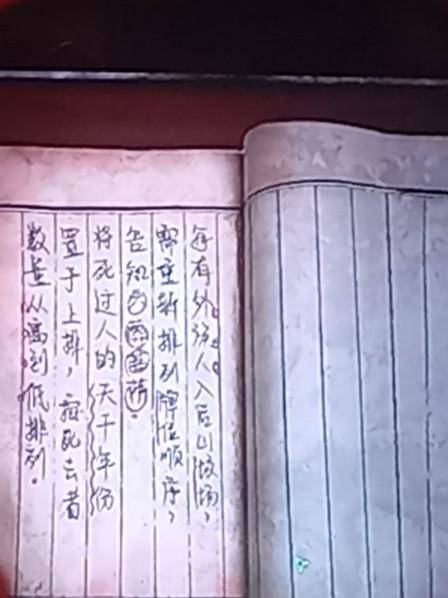 每有外族人入后山坟场，
需重新排列牌位顺序，
告知
将死过人的天干年份
置于上排，按死去者
数量从高到低排列。